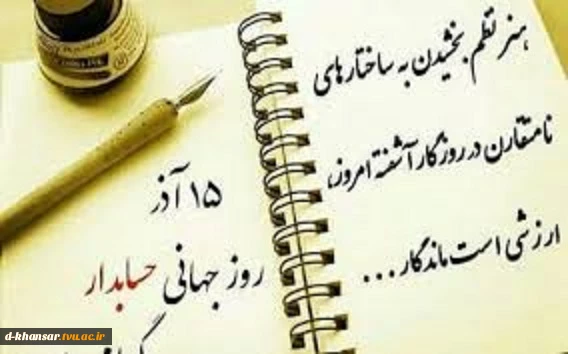 هنر نظم بخشیدن به ساختارهای
نامتقارن در روزگار آشفته امروز،
ارزشی است ماندگار ...
۱۵ آذر
روز جهانی حسابدار
d-khansar.tvu.ac.ir